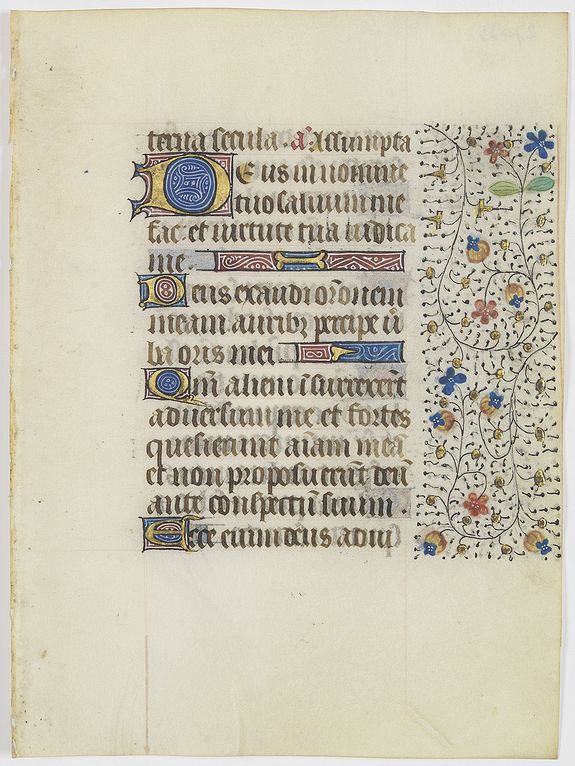 terna secula. a Assumpta
Deus in nomine
tuo salvum me
fac: et virtute tua iudica
me.
Deus exaudi or̄onem
meam auribꝫ percipe v̄
ba oris mei.
Qm̄ alieni īsurrexert̄
adversum me. et fortes
quesierunt aīam meā
et non proposuerūt deū
ante conspectū suum.
Ecce enim deus adiu